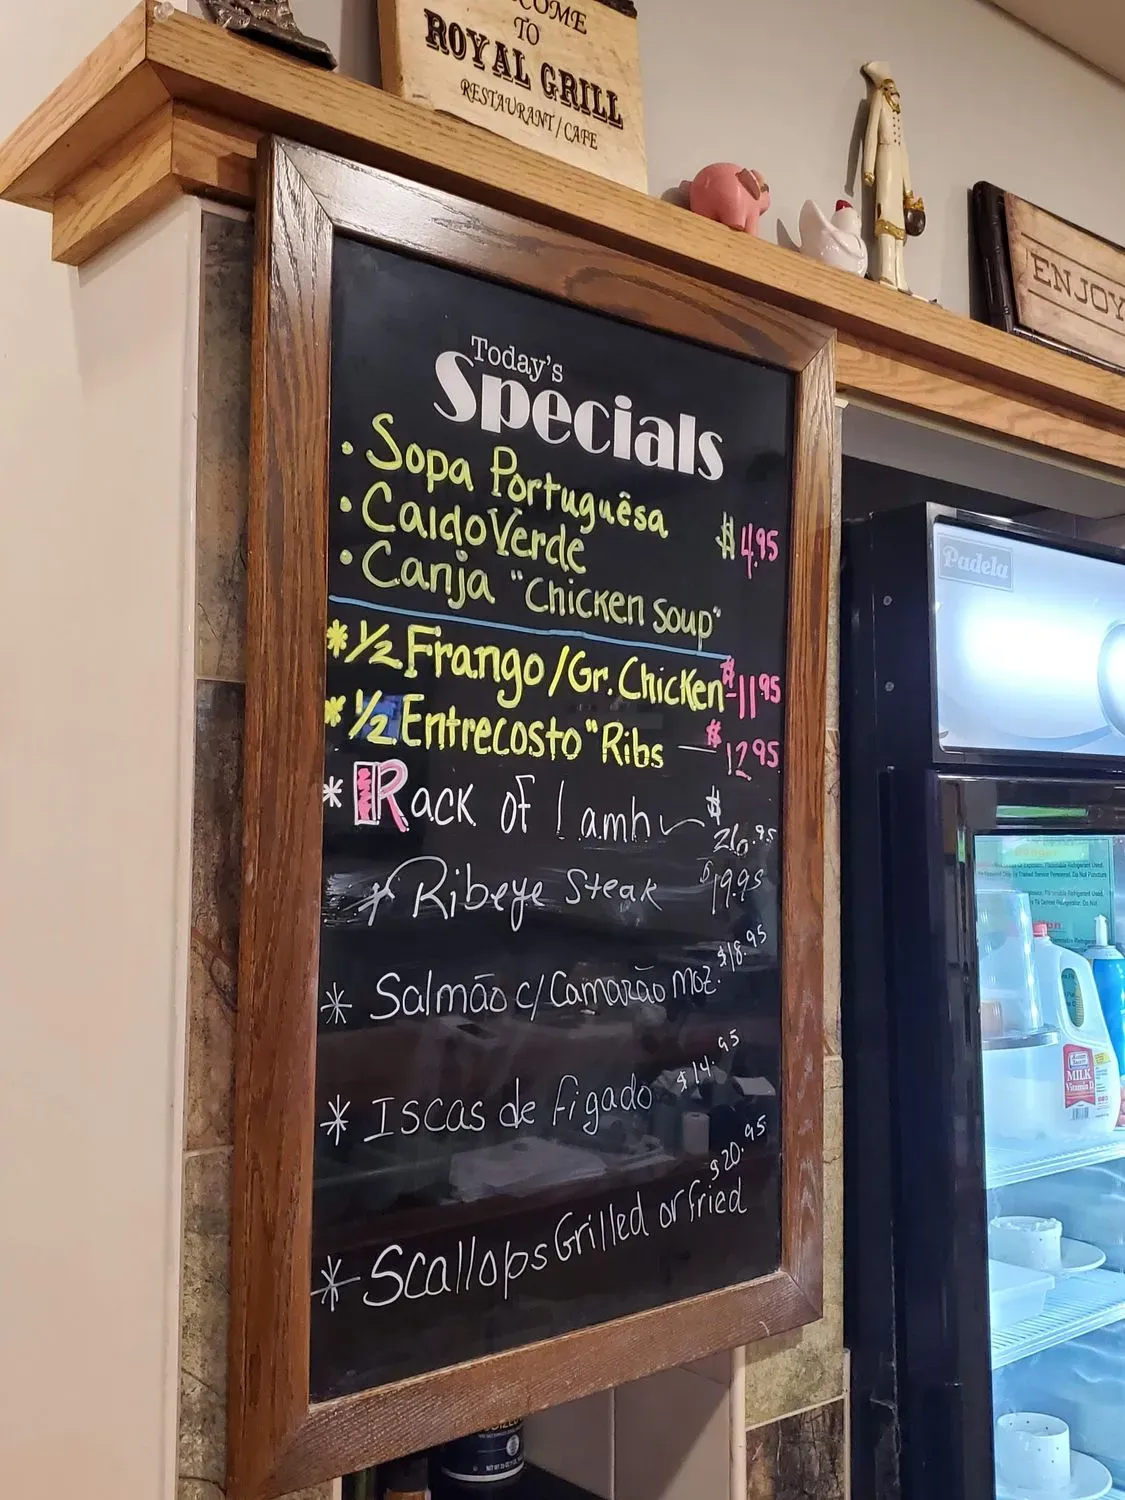 COME
TO
ROYAL GRILL
RESTAURANT / CAFE
ENJOY
Today's
Specials
• Sopa Portuguêsa
• Caldo Verde $4.95
• Canja "Chicken Soup"
* 1/2 Frango / Gr. Chicken $-11.95
* 1/2 Entrecosto "Ribs — $12.95
* Rack of Lamb $26.95
* Ribeye Steak $19.95
* Salmão c/ Camarão moz. $18.95
* Iscas de figado $14.95
* Scallops Grilled or fried $20.95
Padela
MILK
Vitamin D